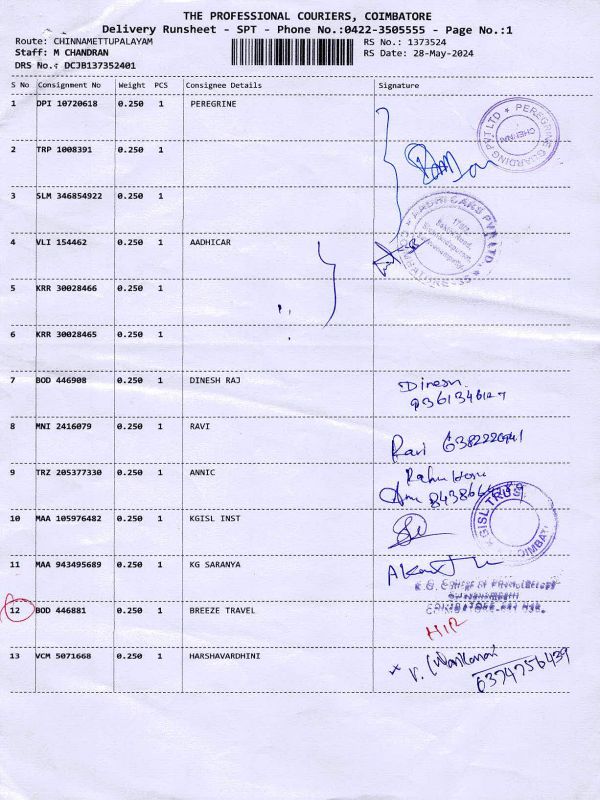 THE PROFESSIONAL COURIERS, COIMBATORE
Delivery Runsheet - SPT - Phone No.:0422-3505555 - Page No.:1
Route: CHINNAMETTUPALAYAM RS No.: 1373524
Staff: M CHANDRAN RS Date: 28-May-2024
DRS No.: DCJB137352401
S No Consignment No Weight PCS Consignee Details Signature
1 DPI 10720618 0.250 1 PEREGRINE
PEREGRINE GUARDING PVT LTD * CHENNAI
2 TRP 1008391 0.250 1
3 SLM 346854922 0.250 1
AADHI CARS PVT LTD. * COIMBATORE-35 *
4 VLI 154462 0.250 1 AADHICAR
5 KRR 30028466 0.250 1
6 KRR 30028465 0.250 1
7 BOD 446908 0.250 1 DINESH RAJ Dinesh
9361346127
8 MNI 2416079 0.250 1 RAVI Ravi
9 TRZ 205377330 0.250 1 ANNIC
10 MAA 105976482 0.250 1 KGISL INST
KGISL TRUST
11 MAA 943495689 0.250 1 KG SARANYA
12 BOD 446881 0.250 1 BREEZE TRAVEL
13 VCM 5071668 0.250 1 HARSHAVARDHINI 6374756439